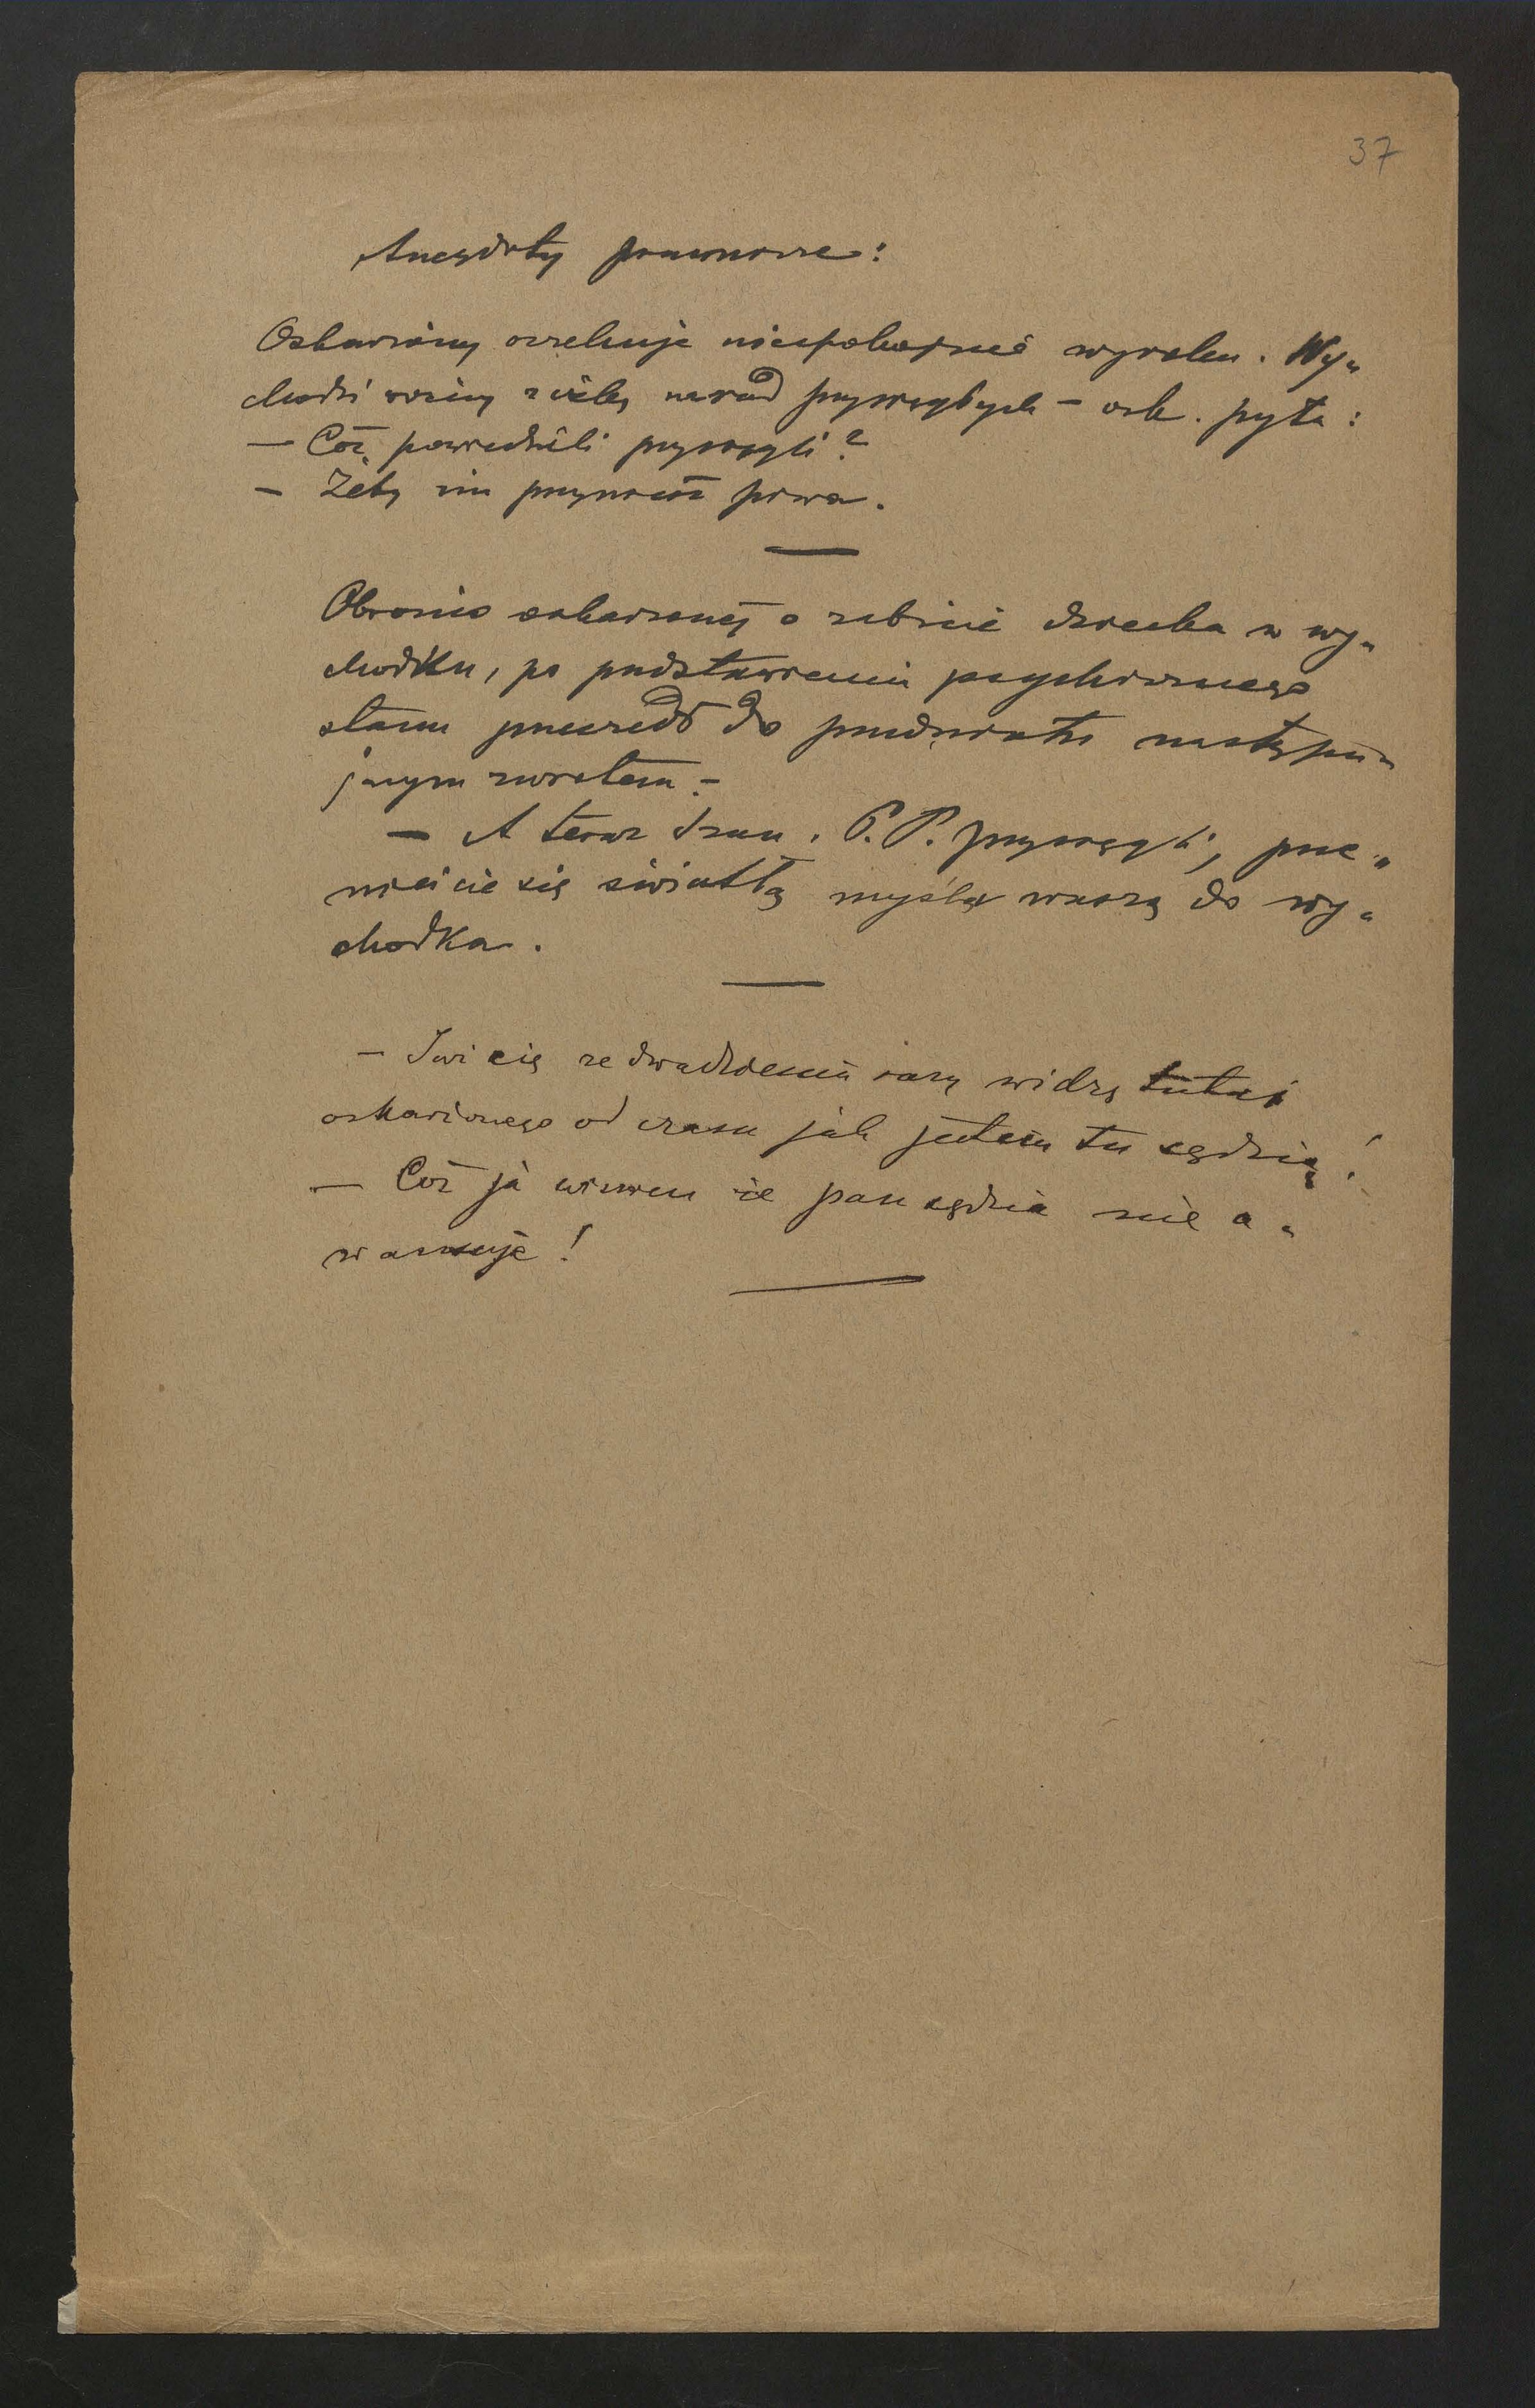 37
Anegdoty prawnicze:
Oskarżony oczekuje niespokojnie wyroku. Wy„
chodzi woźny z izby narad przysięgłych – osk. pyta:
— Cóż powiedzieli przysięgli?
– Żeby im przynieść piwa.
Obrońca oskarżonej o zabicie dziecka w wy„
chodku, po przedstawieniu psychicznego
stanu przeszedł do przedmiotu następu„
jącym zwrotem –
– A teraz Szan. P. P. przysięgli, prze„
nieście się światłą myślą waszą do wy„
chodka.
– Już cię ze dwadzieścia razy widzę tutaj
oskarżonego od czasu jak jestem tu sędzią!
— Cóż ja winien że pan sędzia nie a„
wansuje!